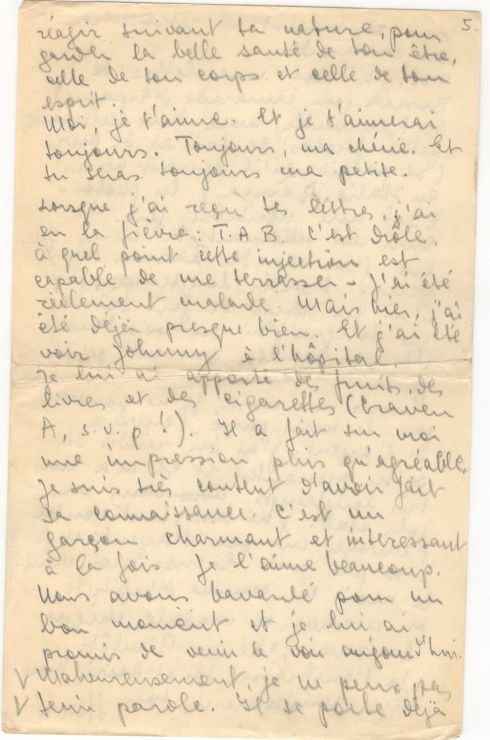 5.
réagir suivant ta nature, pour
garder la belle santé de ton être,
celle de ton corps et celle de ton
esprit.
Moi, je t'aime. Et je t'aimerai
toujours. Toujours, ma chérie. Et
tu seras toujours ma petite.
Lorsque j'ai reçu tes lettres, j'ai
eu la fièvre: T.A.B. C'est drôle,
à quel point cette injection est
capable de me terrasser - J'ai été
réellement malade. Mais hier, j'ai
été déjà presque bien. Et j'ai été
voir Johnny à l'hôpital.
Je lui ai apporté des fruits, des
livres et des cigarettes (Craven
A, s.v.p!). Il a fait sur moi
une impression plus qu'agréable.
Je suis très content d'avoir fait
sa connaissance. C'est un
garçon charmant et intéressant
à la fois. Je l'aime beaucoup.
Nous avons bavardé pour un
bon moment et je lui ai
promis de venir le voir aujourd'hui.
Malheureusement, je ne peux pas
tenir parole. Il se porte déjà